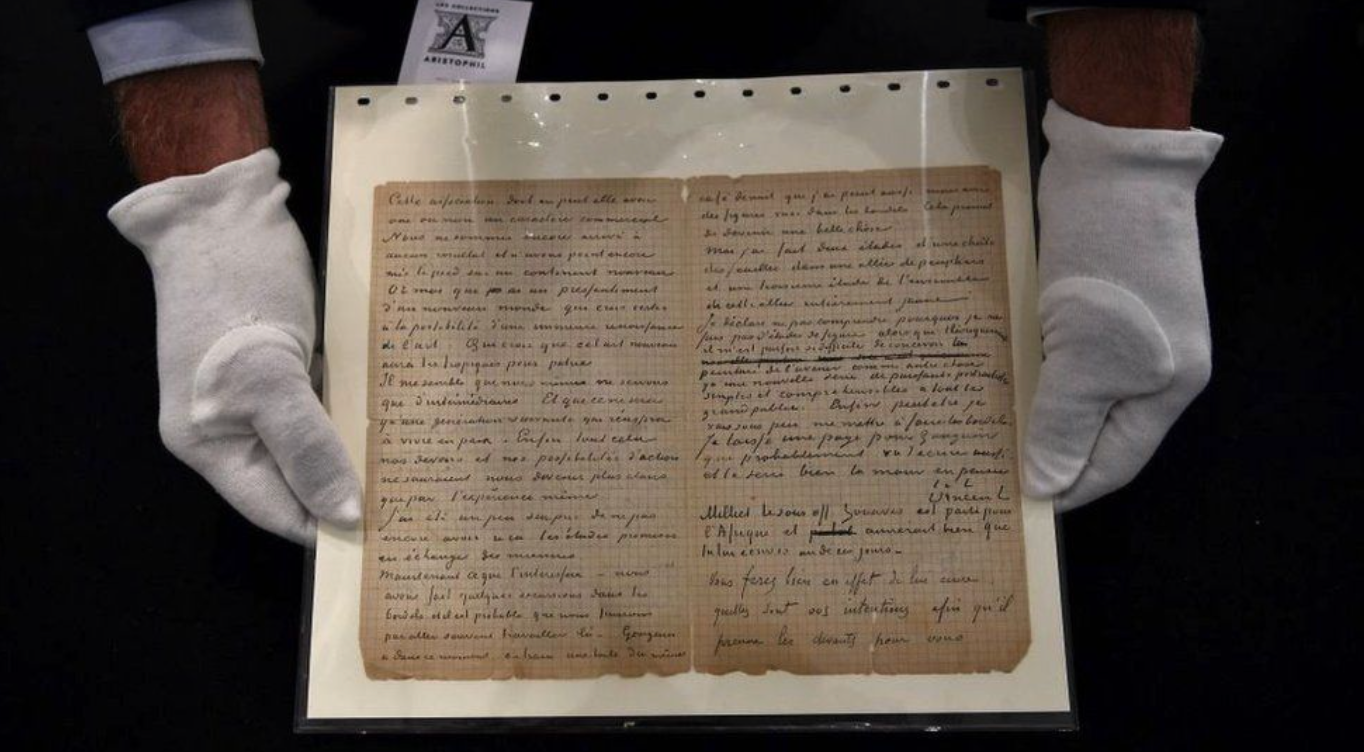 LES COLLECTIONS
A
ARISTOPHIL
Cette association doit ou peut elle avoir
oui ou non un caractère commercial
Nous ne sommes encore arrivé à
aucun resultat et n'avons point encore
mis le pied sur un continent nouveau
Or moi qui ai un pressentiment
d'un nouveau monde qui crois certes
à la possibilité d'une immense renaissance
de l'art. Qui crois que cet art nouveau
aura les tropiques pour patrie
Il me semble que nous mêmes ne servons
que d'intermédiaires Et que ce ne sera
qu'une génération suivante qui réussira
à vivre en paix. Enfin tout cela
nos devoirs et nos possibilités d'action
ne sauraient nous devenir plus clairs
que par l'expérience même
J'ai été un peu surpris de ne pas
encore avoir reçu les études promises
en échange des miennes
Maintenant ce qui t'interessera – nous
avons fait quelques excursions dans les
bordels et il est probable que nous finirons
par aller souvent travailler là. Gauguin
a dans ce moment en train une toile du même
café de nuit que j'ai peint aussi mais avec
des figures vues dans les bordels Cela promet
de devenir une belle chose
Moi j'ai fait deux études d'une chûte
des feuilles dans une allée de peupliers
et une troisieme étude de l'ensemble
de cette allee entièrement jaune
Je déclare ne pas comprendre pourquoi je ne
fais pas d'études de figure alors que théoriquement
il m'est parfois si difficile de concevoir la
peinture de l'avenir comme autre chose
qu'une nouvelle serie de puissants portraitistes
simples et comprehensibles à tout le
grand public. Enfin peut etre je
vais sous peu me mettre à faire les bordels.
Je laisse une page pour Gauguin
qui probablement va t'écrire aussi
et te serre bien la main en pensée
t. à t.
Vincent
Milliet le sous off. Zouaves est parti pour
l'Afrique et aimerait bien que
tu lui écrives un de ces jours.
Vous ferez bien en effet de lui ecrire
quelles sont vos intentions afin qu'il
prenne les devants pour vous